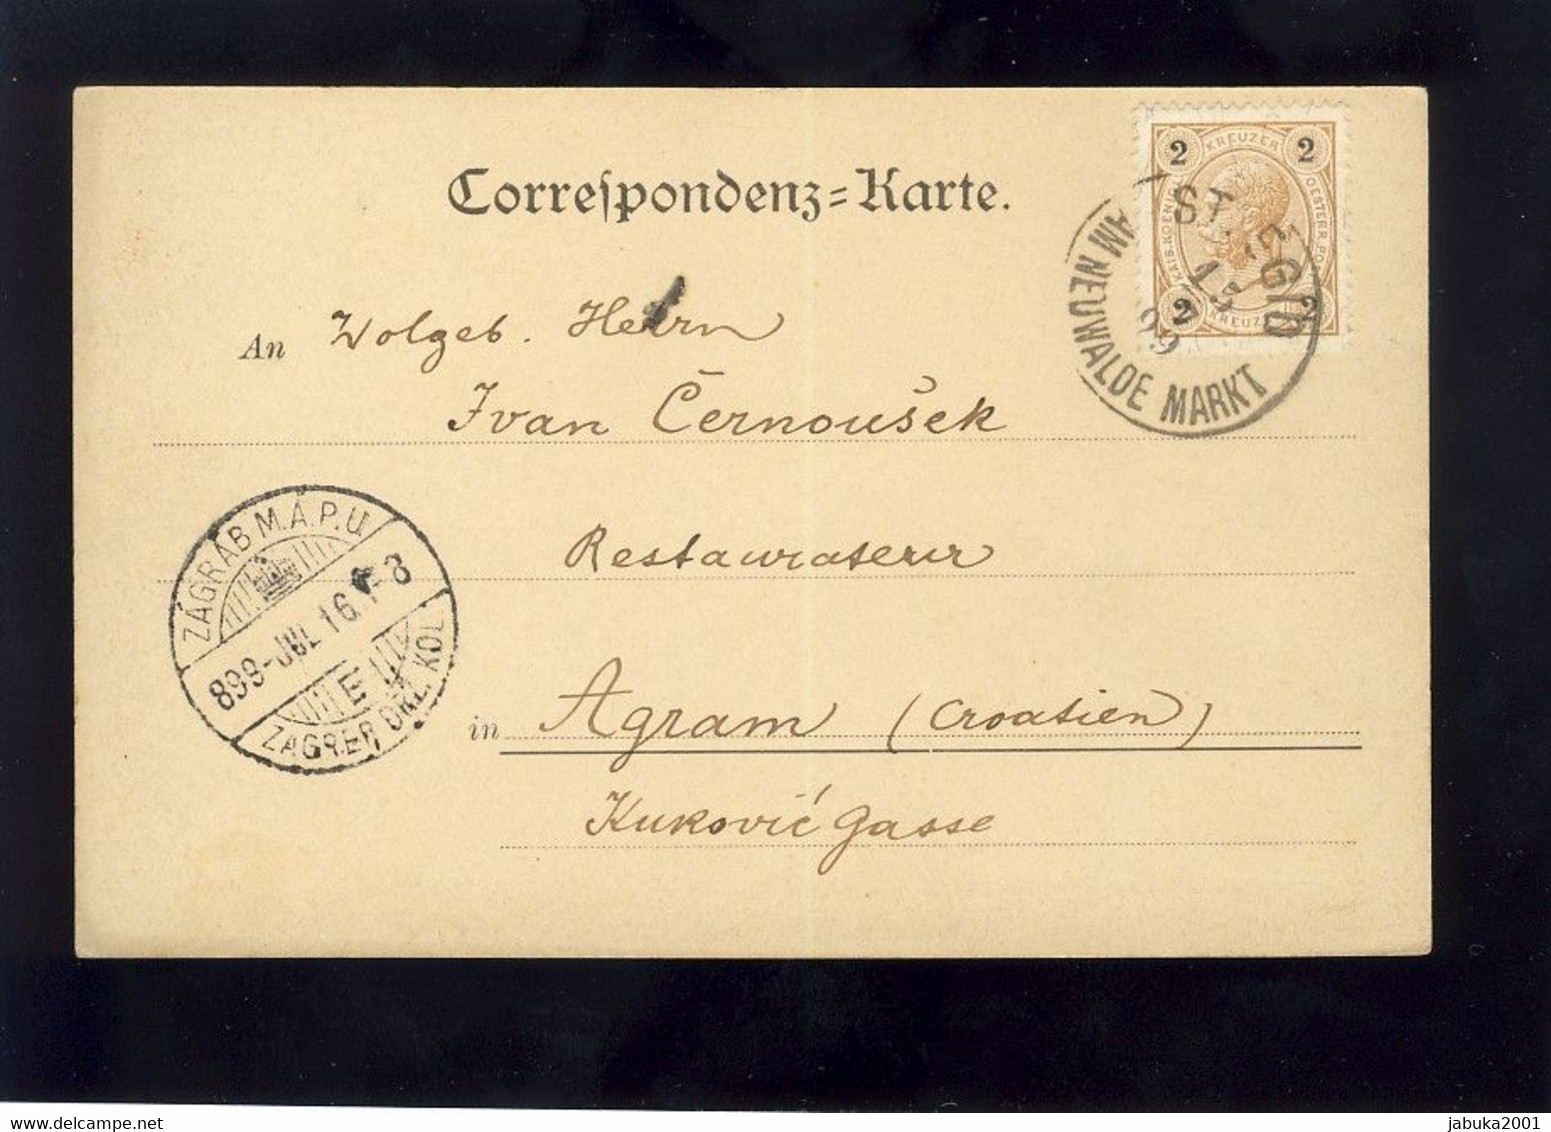 Correſpondenz=Karte.
2 KREUZER 2
KAIS. KOENIGL. OESTERR. PO
2 KREUZ 2
ST. EGID
15 7
99
AM NEUWALDE MARKT
An Wolgeb. Herrn
Ivan Černoušek
Restaurateur
in Agram (Croatien)
Kuković Gasse
ZÁGRÁB M.Á.P.U.
899-JUL 16. -8
E
ZAGREB DRŽ. KOL.
delcampe.net
jabuka2001